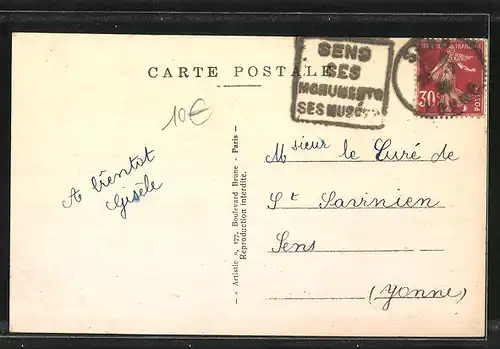 CARTE POSTALE
SENS
SES
MONUMENTS
SES MUSÉES
30c
POSTES
10€
A bientot
Gisèle
« Artistic », 177, Boulevard Brune - Paris -
Reproduction interdite.
Msieur le Curé de
St Savinien
Sens
(Yonne)